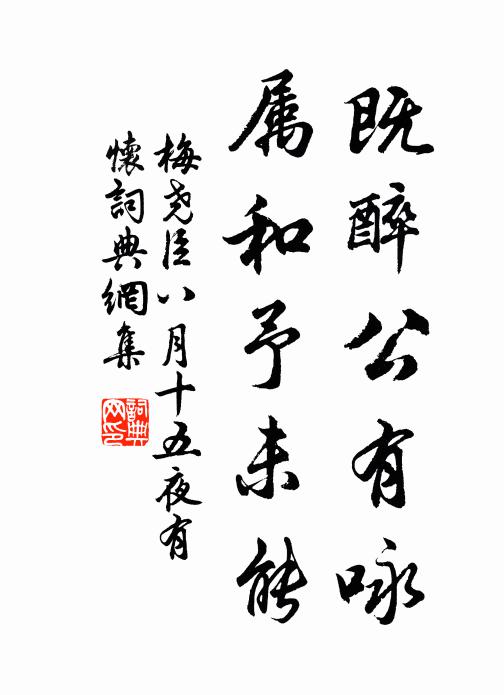 既醉公有咏
属和予未能
梅尧臣八月十五夜有
懷詞典網集
詞典
网印